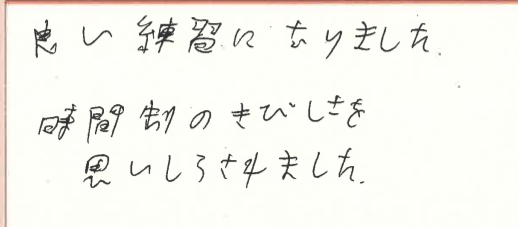 良い練習になりました.
時間割のきびしさを
思いしらされました.